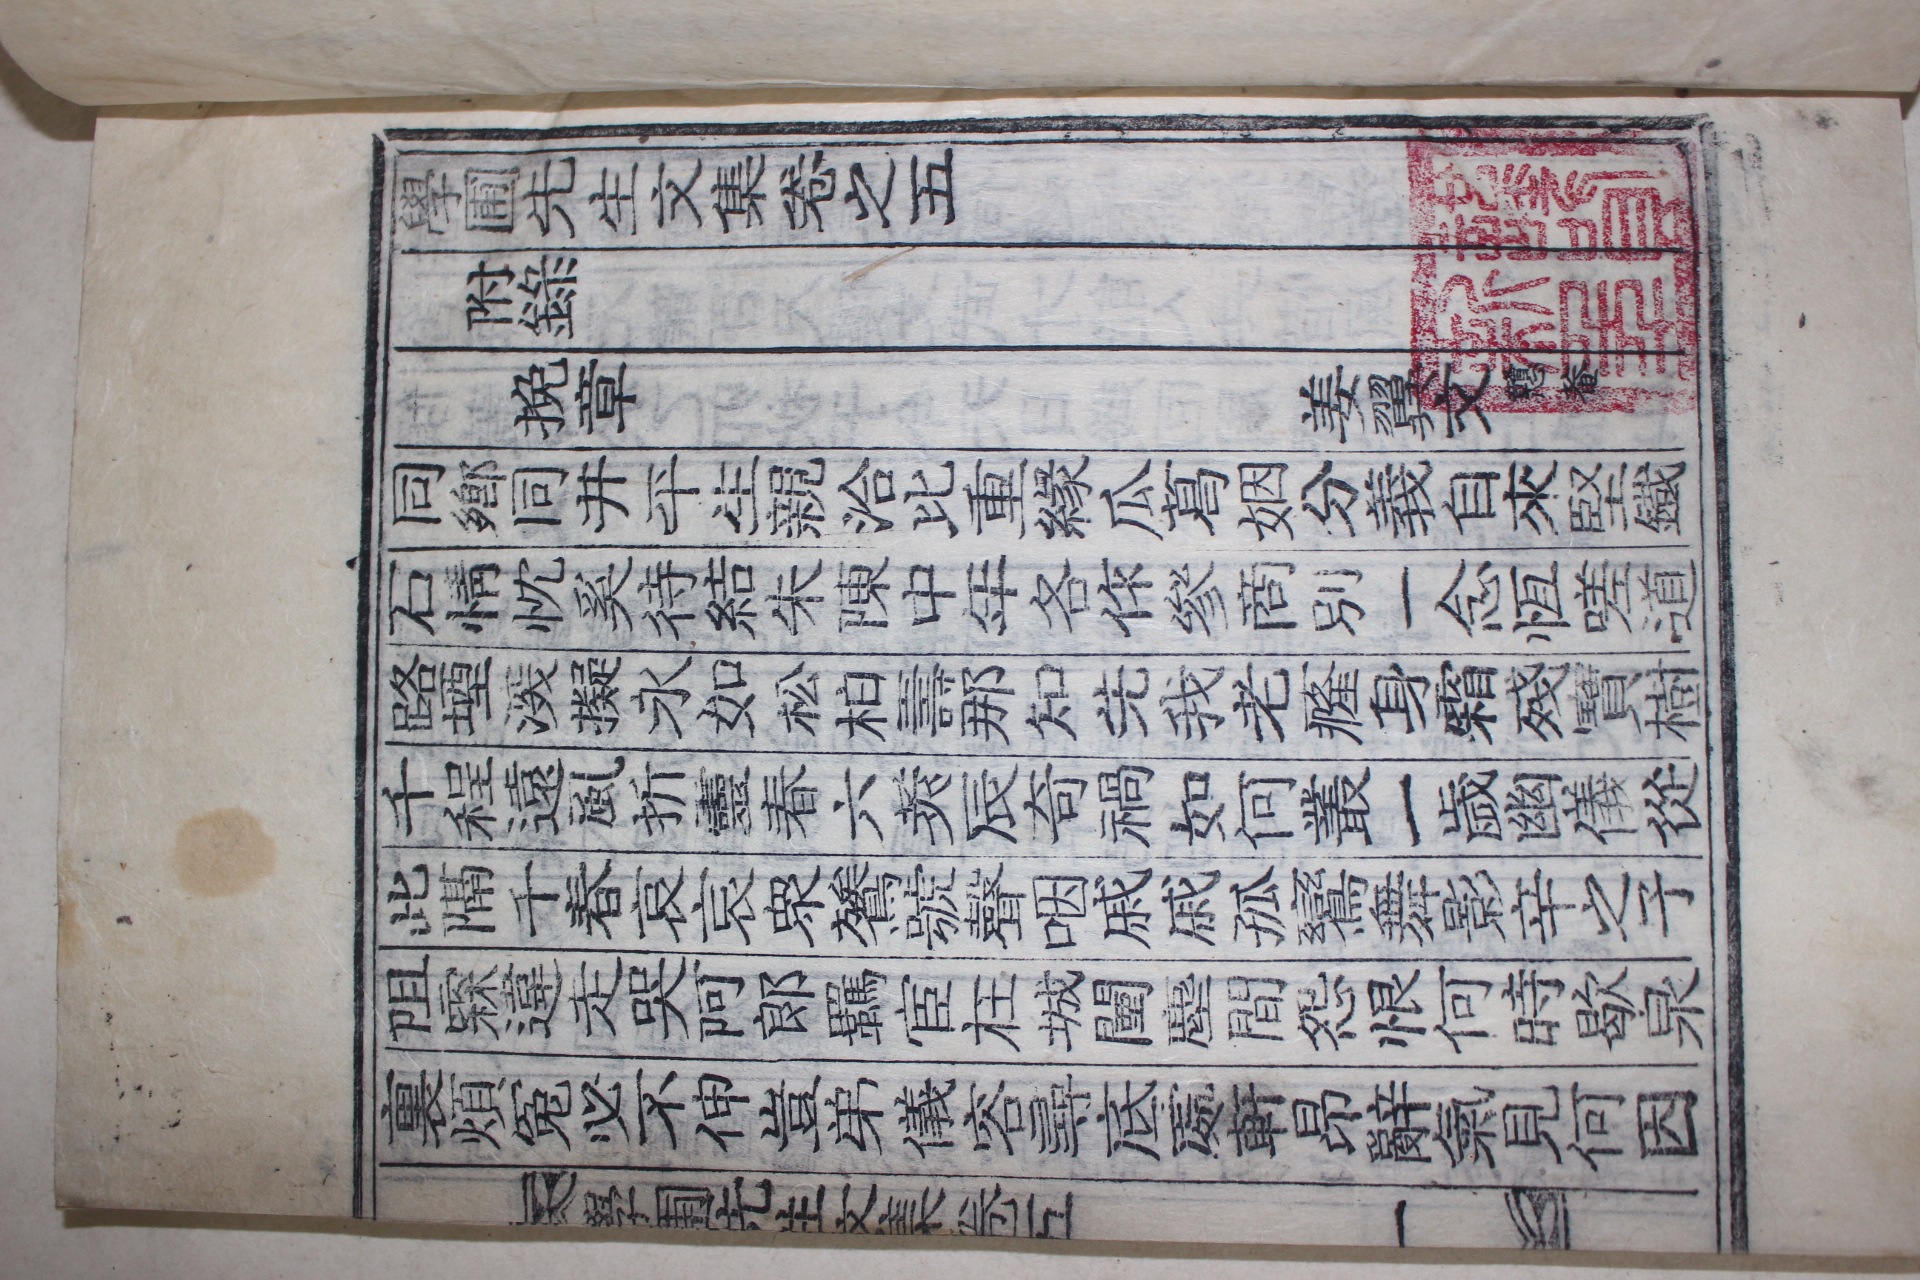 學圃先生文集卷之五
附錄
挽章 姜翼文 戇菴
同鄉同井平生親洽比重緣瓜葛姻分義自來堅鐵
石情忱奚待結朱陳中年各作參商別一念恆嗟道
路堙渼擬永如松柏壽那知先我老癃身霜殘寶樹
千程遠風折靈春六莢辰奇禍如何叢一歲幽儀從
此隔千春哀哀衆鷟號聲咽戚戚孤鸞舞影辛之子
阻霖違走哭阿郎羈宦枉城闉塵間怨恨何時歇泉
裏煩冤必不伸豈弟儀容尋底處軒昂辭氣見何因
學圃先生文集卷五 一